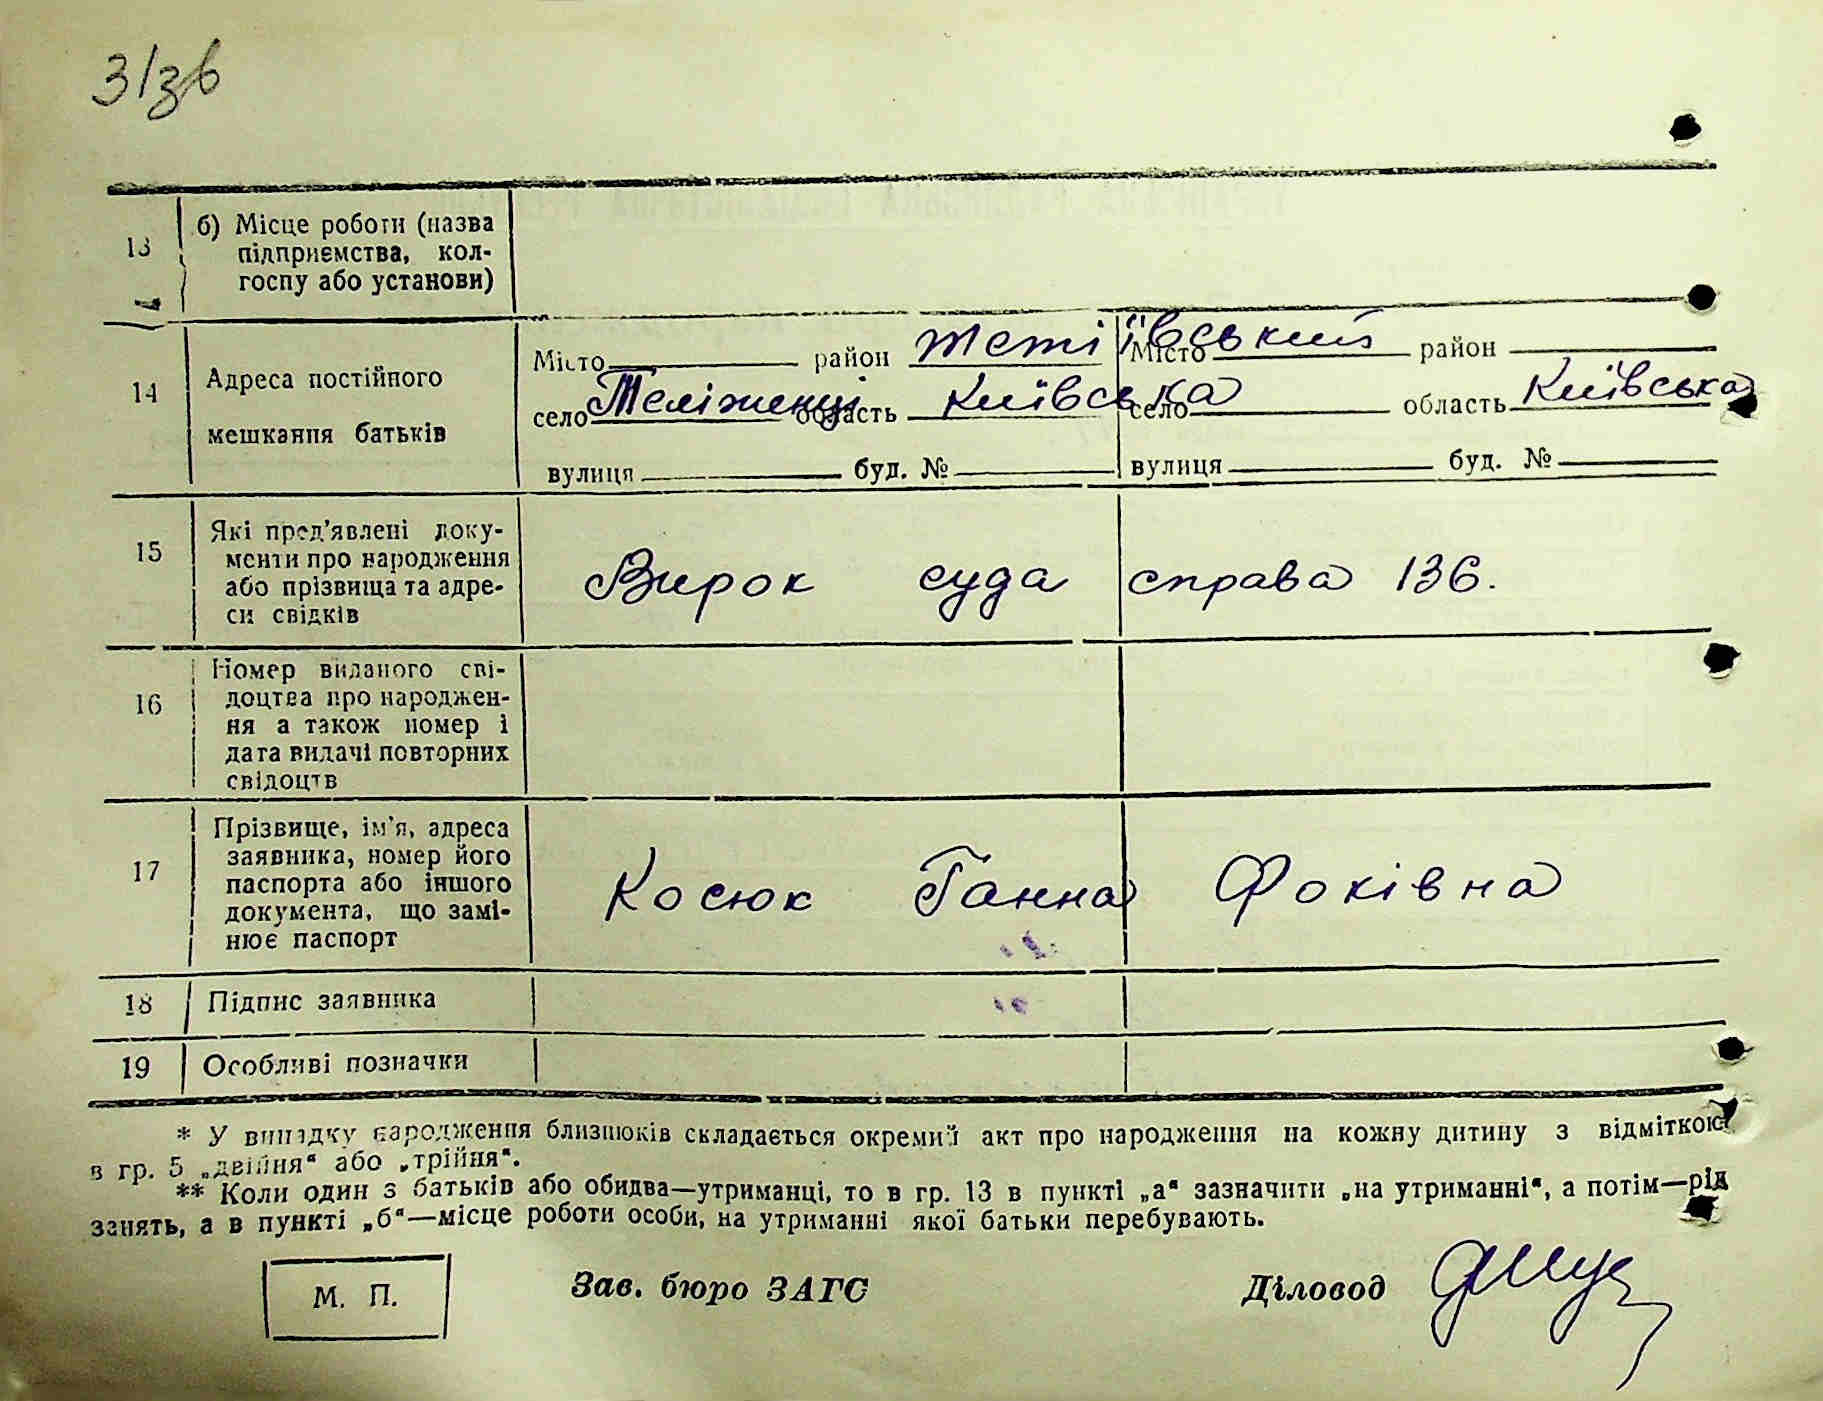 3/зв
13 б) Місце роботи (назва
підприємства, кол-
госпу або установи)
14 Адреса постійного
мешкання батьків
Місто район Тетіївський Місто район
село Теліженці область Київська село область Київська
вулиця буд. № вулиця буд. №
15 Які пред'явлені доку-
менти про народження
або прізвища та адре-
си свідків
Вирок суда справа 136.
16 Номер виданого сві-
доцтва про народжен-
ня а також номер і
дата видачі повторних
свідоцтв
17 Прізвище, ім'я, адреса
заявника, номер його
паспорта або іншого
документа, що замі-
нює паспорт
Косюк Ганна Фоківна
18 Підпис заявника
19 Особливі позначки
* У випадку народження близнюків складається окремий акт про народження на кожну дитину з відміткою
в гр. 5 „двійня" або „трійня".
** Коли один з батьків або обидва—утриманці, то в гр. 13 в пункті „а" зазначити „на утриманні", а потім—рід
занять, а в пункті „б"—місце роботи особи, на утриманні якої батьки перебувають.
М. П. Зав. бюро ЗАГС Діловод